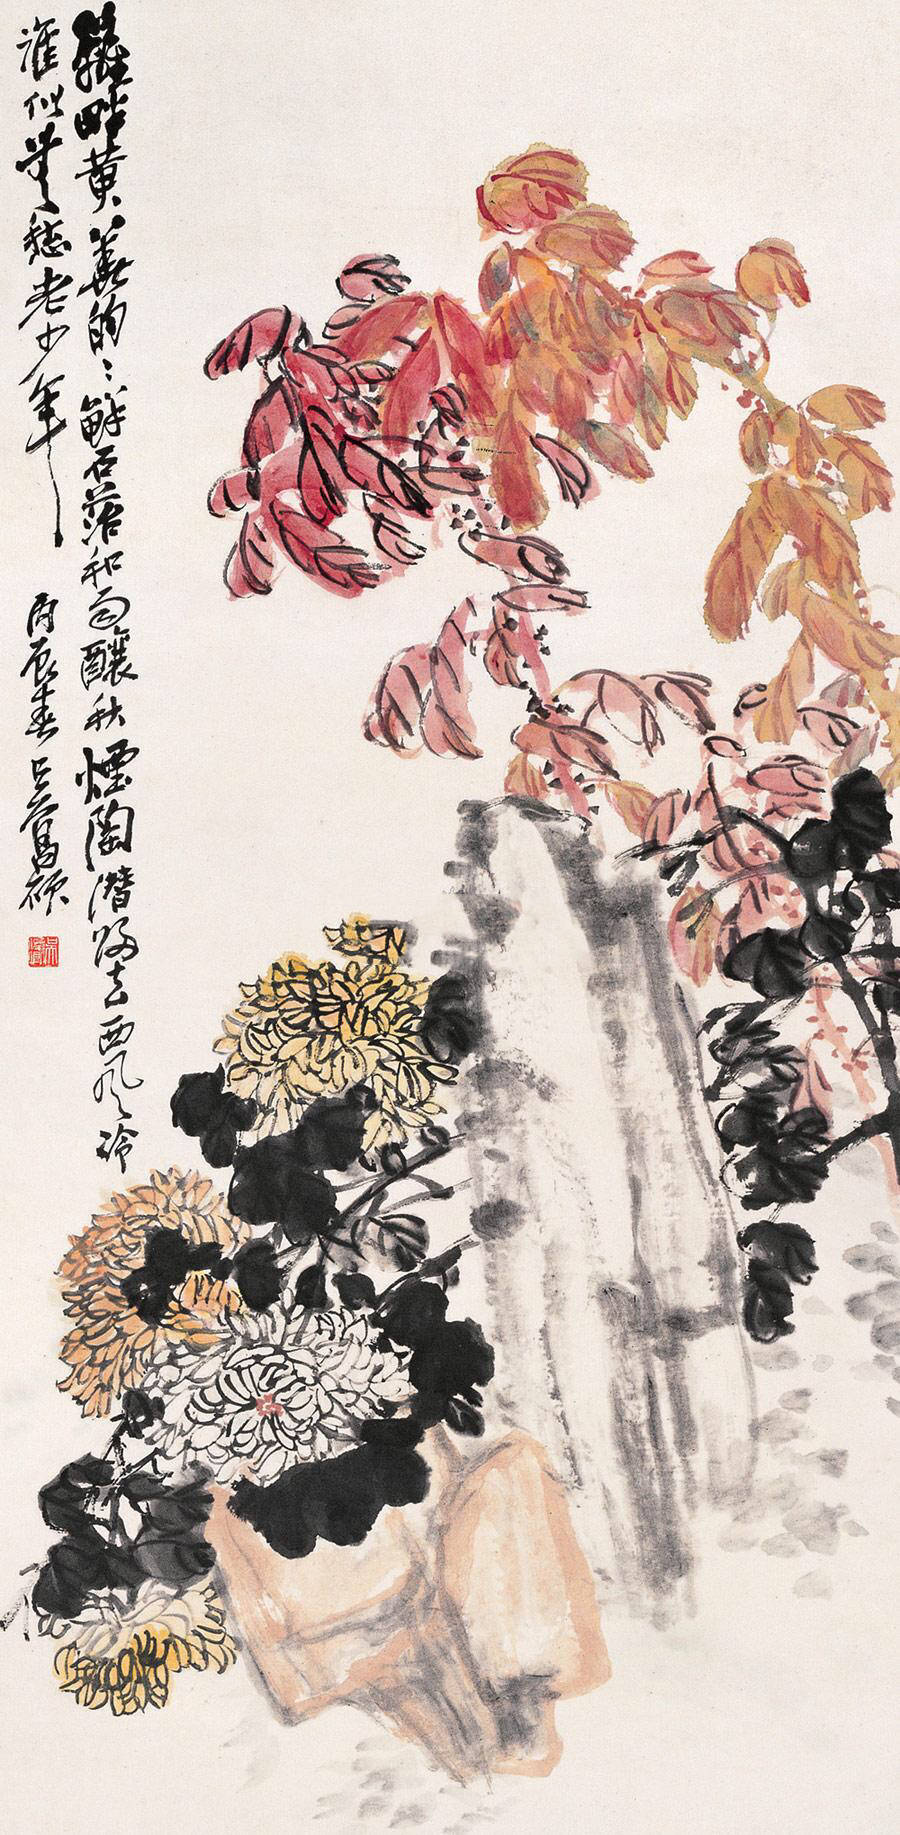 籬畔黃華的〻鮮石菭和雨釀秋煙陶潛歸去西風冷
誰似無愁老少年
丙辰春吳昌碩